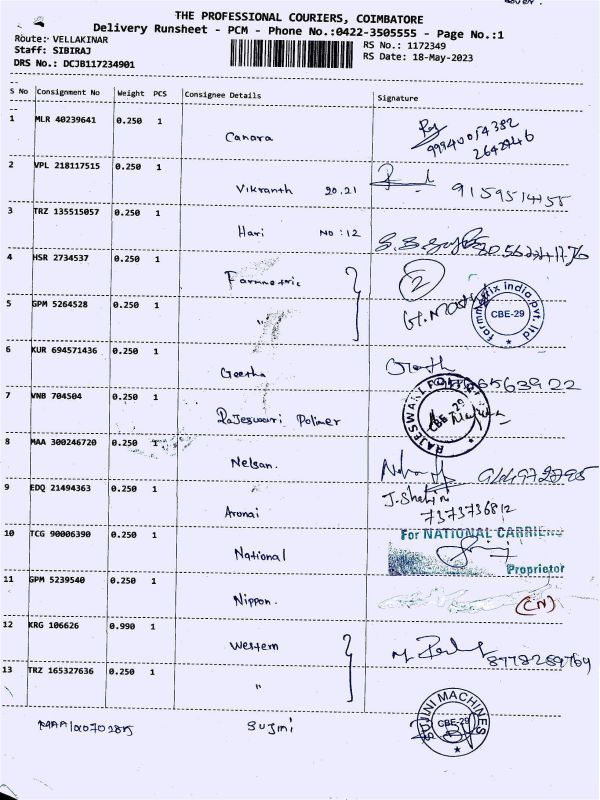 THE PROFESSIONAL COURIERS, COIMBATORE
Delivery Runsheet - PCM - Phone No.:0422-3505555 - Page No.:1
Route: VELLAKINAR
RS No.: 1172349
Staff: SIBIRAJ
RS Date: 18-May-2023
DRS No.: DCJB117234901
S No Consignment No Weight PCS Consignee Details Signature
1 MLR 40239641 0.250 1 Canara
2 VPL 218117515 0.250 1 Vikranth 20,21
3 TRZ 135515057 0.250 1 Hari NO : 12
4 HSR 2734537 0.250 1 2
5 GPM 5264528 0.250 1 " CBE-29
6 KUR 694571436 0.250 1 Geetha
7 VNB 704504 0.250 1 Rajeswari Polimer CBE-29
8 MAA 300246720 0.250 1 Nelsan.
9 EDQ 21494363 0.250 1 Aronai 7373736812
10 TCG 90006390 0.250 1 National For NATIONAL CARRIERS
Proprietor
11 GPM 5239540 0.250 1 Nippon. (CN)
12 KRG 106626 0.990 1 Western
13 TRZ 165327636 0.250 1 "
Sujini SUJINI MACHINES CBE-29